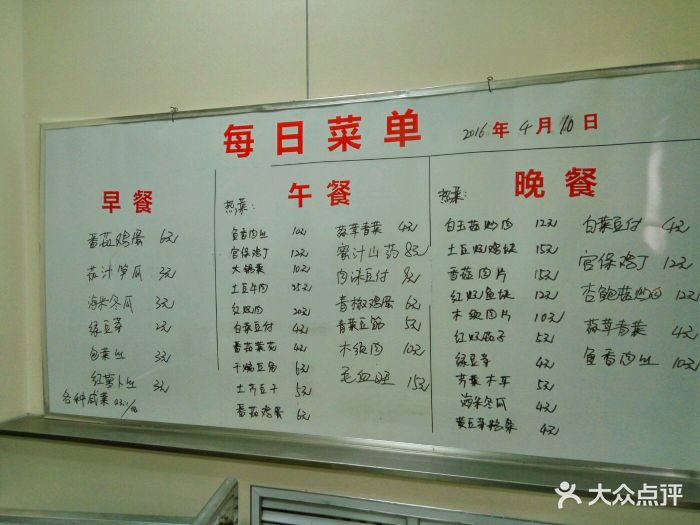 每日菜单
2016年4月10日
早餐
番茄鸡蛋 6元
茄汁笋瓜 3元
海米冬瓜 3元
绿豆芽 2元
包菜丝 3元
红萝卜丝 3元
各种咸菜
午餐
热菜:
鱼香肉丝 10元
宫保鸡丁 12元
大锅菜 10元
土豆牛肉 25元
红烧肉 20元
白菜豆付 4元
番茄菜花 4元
干煸豆角 6元
土芹豆干 5元
番茄鸡蛋 6元
蒜蓉青菜 4元
蜜汁山药 8元
肉沫豆付 8元
青椒鸡蛋 6元
青菜豆筋 5元
木须肉 10元
毛血旺 15元
晚餐
热菜:
白玉菇炒肉 12元
土豆烧鸡块 15元
香菇肉片 15元
红烧鱼块 12元
木须肉片 10元
红烧茄子 5元
绿豆芽 4元
芹菜木耳 5元
海米冬瓜 4元
黄豆芽粉条 4元
白菜豆付 4元
宫保鸡丁 12元
杏鲍菇炒肉 12元
蒜蓉青菜 4元
鱼香肉丝 10元
大众点评